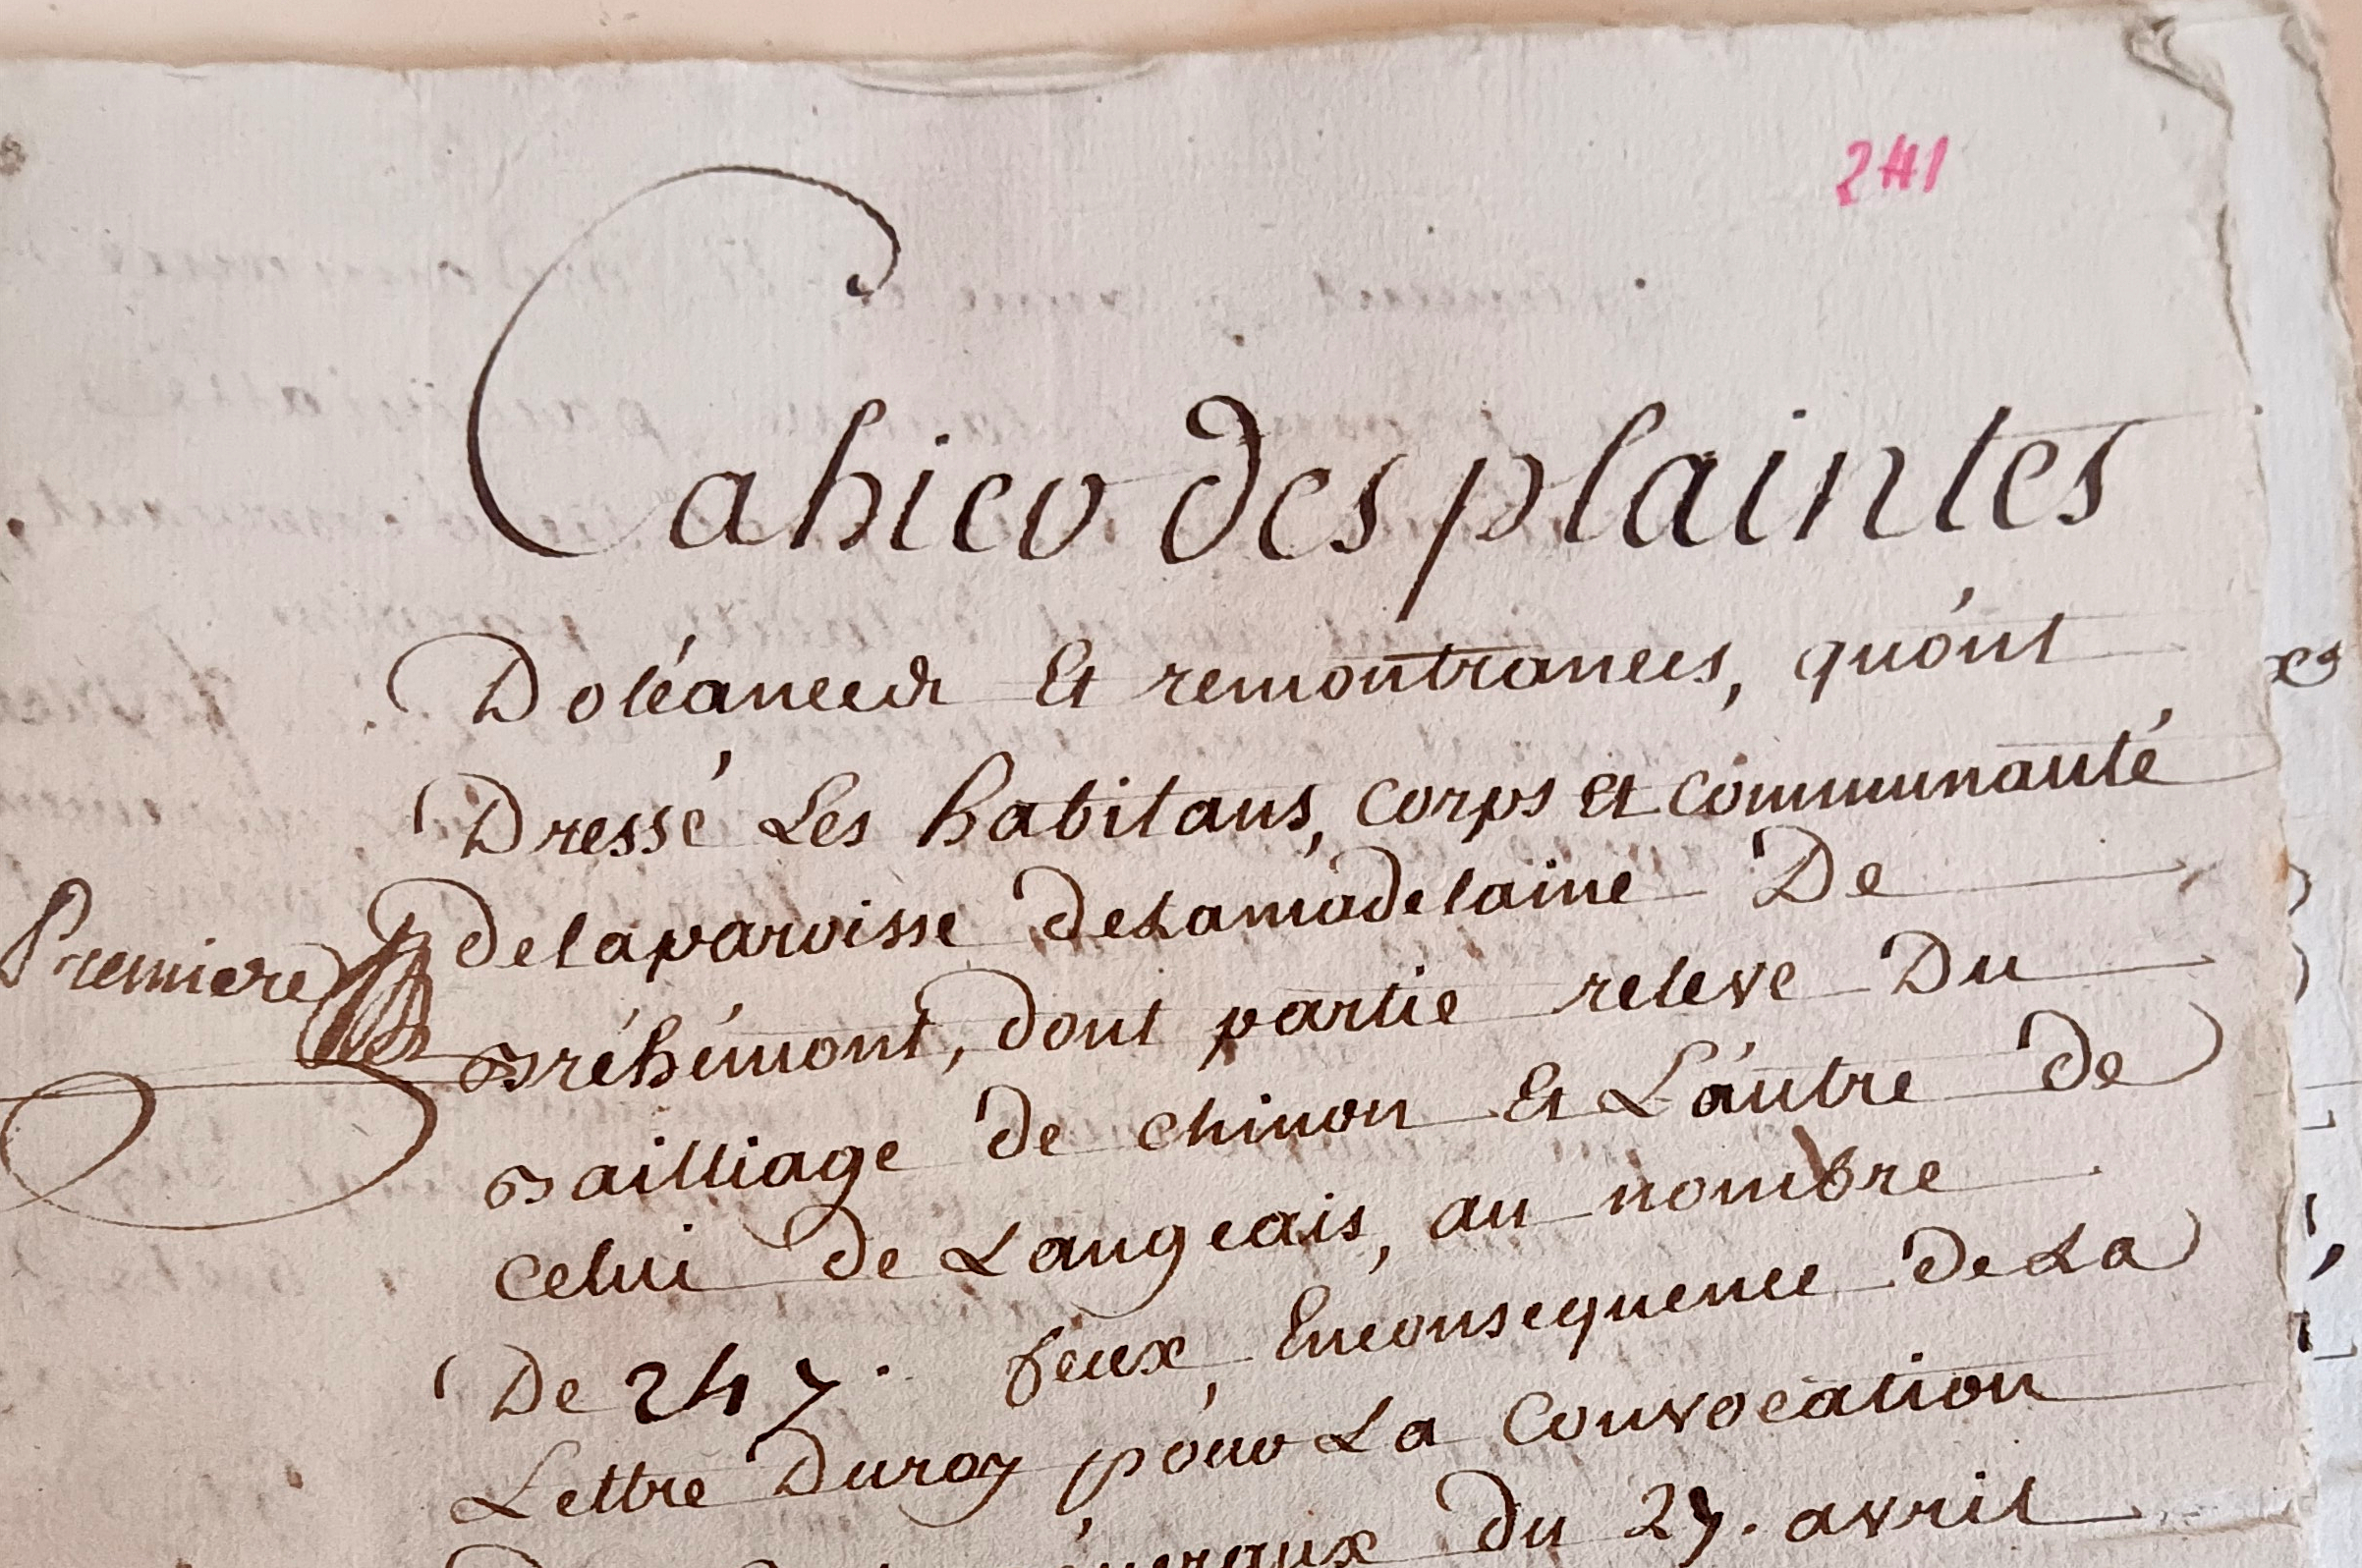 241
Cahier des plaintes
Doléances Et remontrances, qu'ont
Dressé Les habitans, corps et communauté
de la paroisse de La madelaine De
Bréhémont, dont partie releve Du
Bailliage de chinon Et L'autre de
celui de Langeais, au nombre
De 247. feux, En consequence de La
Lettre Du roy pour La Convocation
du 27. avril
Premiere